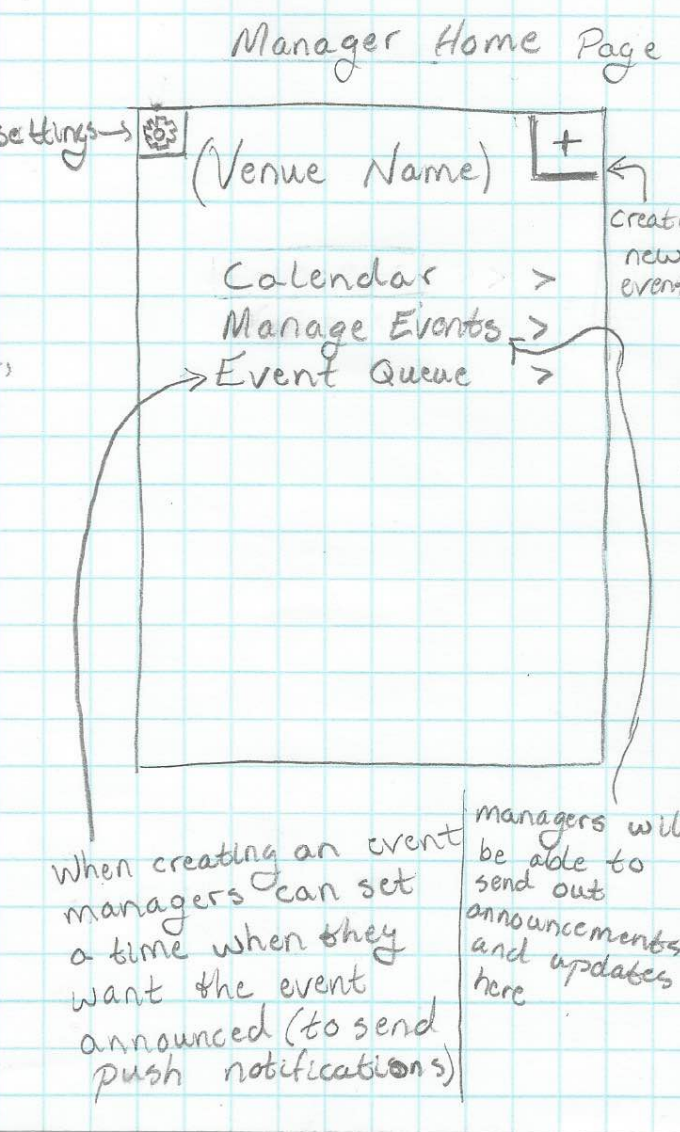 Manager Home Page
settings
(Venue Name)
+
creat
new
event
Calendar >
Manage Events >
Event Queue >
When creating an event
managers can set
a time when they
want the event
announced (to send
push notifications)
managers wil
be able to
send out
announcements
and updates
here